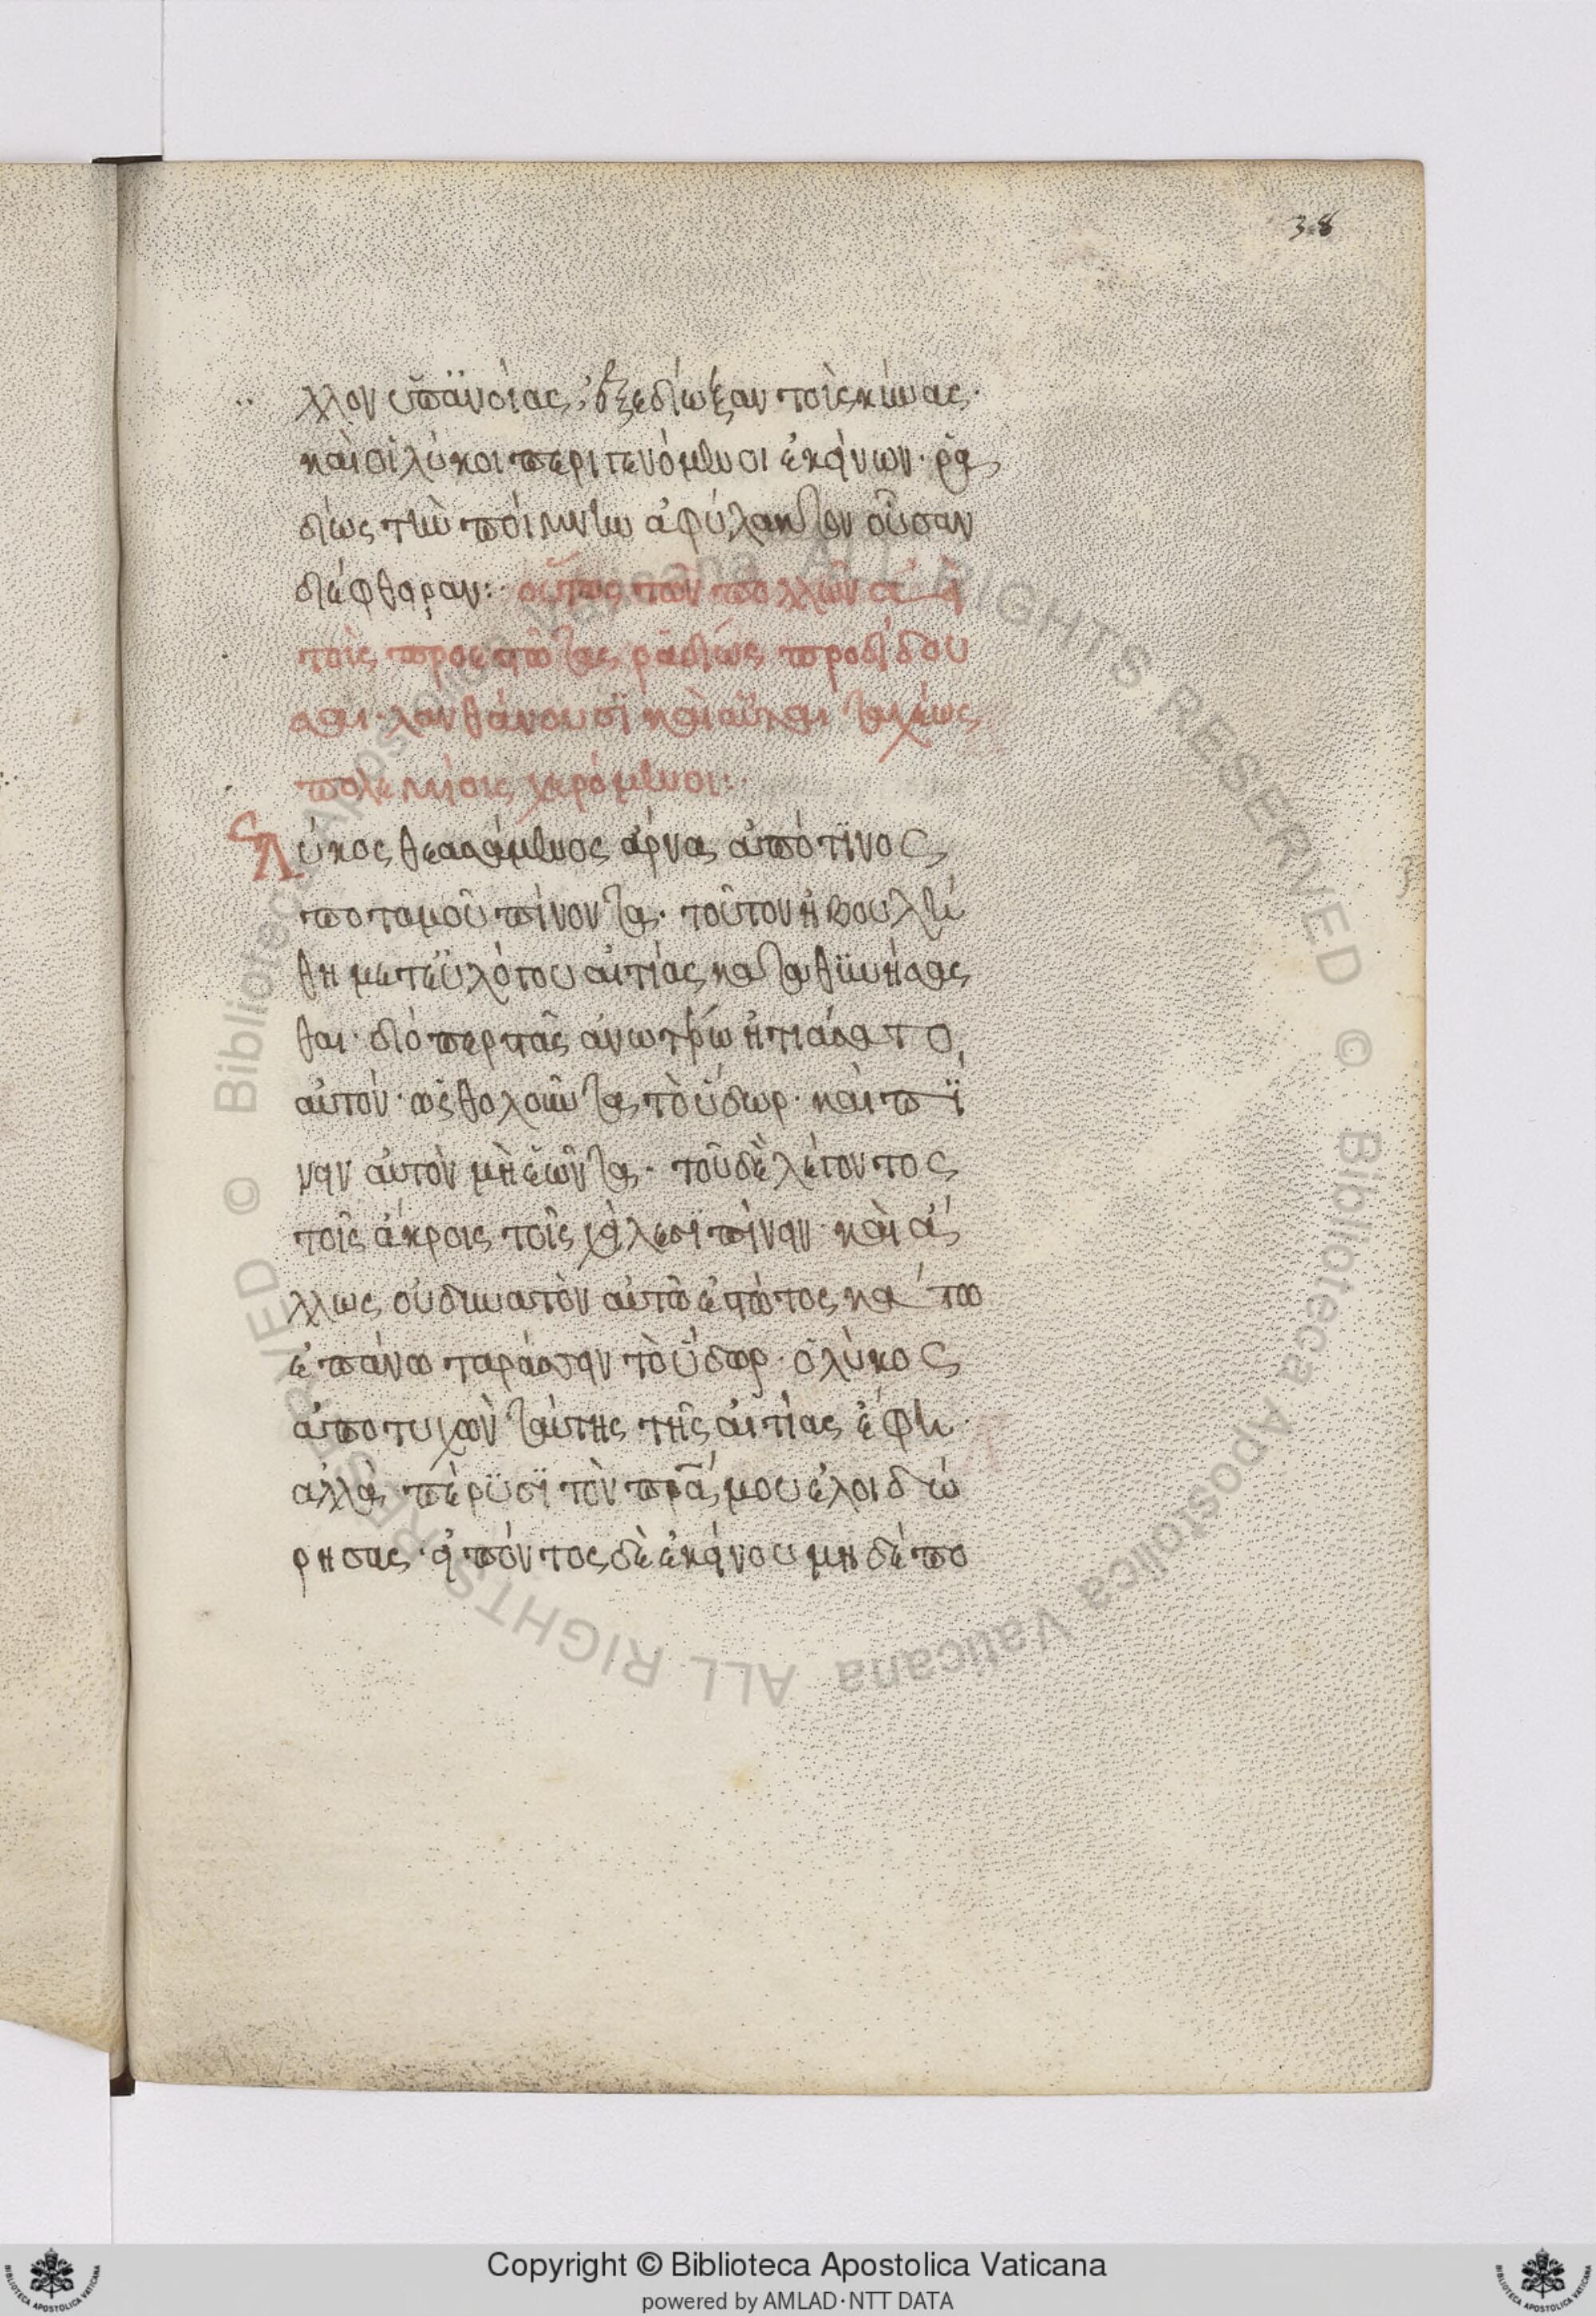 38
λλον ὑπ' ἀνοίας, ἐξεδίωξαν τοὺς κύνας·
καὶ οἱ λύκοι περιγενόμενοι ἐκείνων· ῥα
δίως τὴν ποίμνην ἀφύλακτον οὖσαν
διέφθειραν:· οὕτως τῶν πόλεων αἱ
τοὺς προεστῶτας ῥαδίως προδιδοῦ
σαι· λανθάνουσϊ καὶ αὗται ταχέως
πολεμίοις χειρόμεναι:·
Λύκος θεασάμενος ἄρνα ἀπό τϊνος
ποταμοῦ πίνοντα· τοῦτον ἠβουλή
θη μετ' εὐλόγου αἰτίας καταθϋνήσας
θαι· διόπερ στὰς ἀνωτέρω ἠτιάσατο
αὐτόν· ὡς θολοῦντα τὸ ὕδωρ· καὶ πϊ
νειν αὐτὸν μὴ ἐῶντα· τοῦ δὲ λέγοντος
τοῖς ἄκροις τοῖς χείλεσϊ πίνειν· καὶ ἄ
λλως οὐ δυνατὸν αὐτῶ ἑστῶτος κάτω
ἐπάνω ταράσσειν τὸ ὕδωρ· ὁ λύκος
ἀποτυχὼν ταύτης τῆς αἰτίας ἔφη·
ἀλλὰ πέρϋσϊ τὸν πρα μου ἐλοιδώ
ρησας· εἰπόντος δὲ ἐκείνου μηδέπο
Copyright © Biblioteca Apostolica Vaticana
powered by AMLAD·NTT DATA